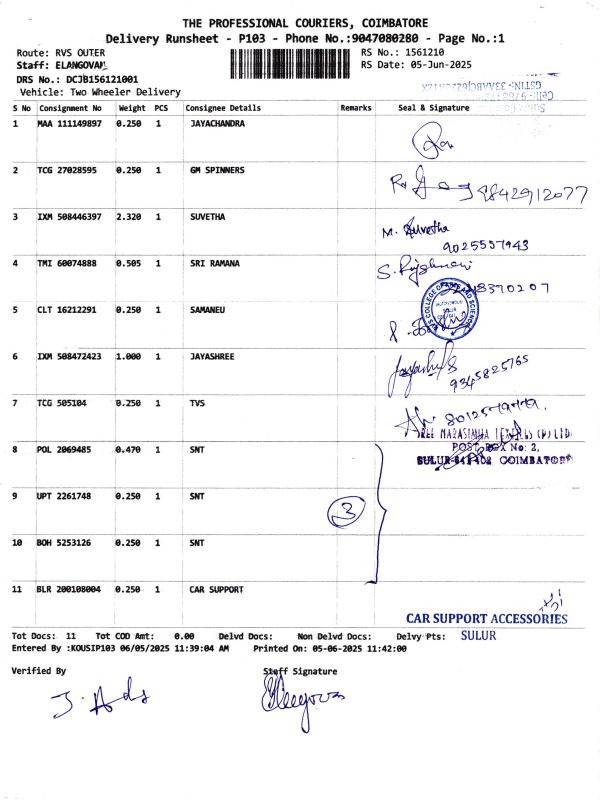 THE PROFESSIONAL COURIERS, COIMBATORE
Delivery Runsheet - P103 - Phone No.:9047080280 - Page No.:1
Route: RVS OUTER
RS No.: 1561210
Staff: ELANGOVAN
RS Date: 05-Jun-2025
DRS No.: DCJB156121001
Vehicle: Two Wheeler Delivery
S No Consignment No Weight PCS Consignee Details Remarks Seal & Signature
1 MAA 111149897 0.250 1 JAYACHANDRA
2 TCG 27028595 0.250 1 GM SPINNERS
9842912077
3 IXM 508446397 2.320 1 SUVETHA M. Suvetha
9025557943
4 TMI 60074888 0.505 1 SRI RAMANA
5 CLT 16212291 0.250 1 SAMANEU
6 IXM 508472423 1.000 1 JAYASHREE
9345825765
7 TCG 505104 0.250 1 TVS
8 POL 2069485 0.470 1 SNT
POST BOX No: 2,
SULUR-641402 COIMBATORE
9 UPT 2261748 0.250 1 SNT 3
10 BOH 5253126 0.250 1 SNT
11 BLR 200108004 0.250 1 CAR SUPPORT
CAR SUPPORT ACCESSORIES
SULUR
Tot Docs: 11 Tot COD Amt: 0.00 Delvd Docs: Non Delvd Docs: Delvy Pts:
Entered By :KOUSIP103 06/05/2025 11:39:04 AM Printed On: 05-06-2025 11:42:00
Verified By Staff Signature